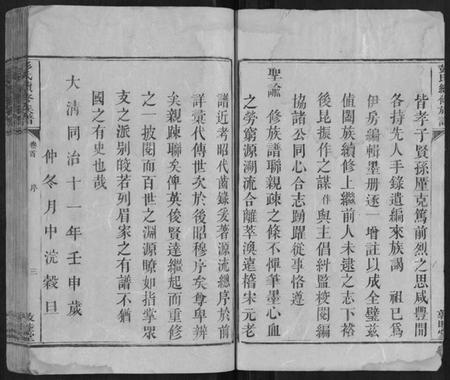 皆孝子賢孫厪克篤前烈之思咸豐間
各持先人手錄遺編來族謁 祖已爲
伊房編輯墨册逐一增註以成全璧茲
値闔族續修上繼前人未逮之志下裕
後昆振作之謀 作與主倡糾監校閱編
協諸公同心合志踴躍從事恪遵
聖諭 修族譜聯親疎之條不憚筆墨心血
之勞窮源溯流合離萃渙遠稽宋元老
譜近考昭代齒錄爰著源流總序於前
詳彙代傳世次於後昭穆序矣尊卑辨
矣親疎聯矣俾英後賢達繼起而重修
之一披閱而百世之淵源瞭如指掌眾
支之派別皎若列眉家之有譜不猶
國之有史也哉
大清同治十一年壬申歲
仲冬月中浣穀旦
卷首 序 三